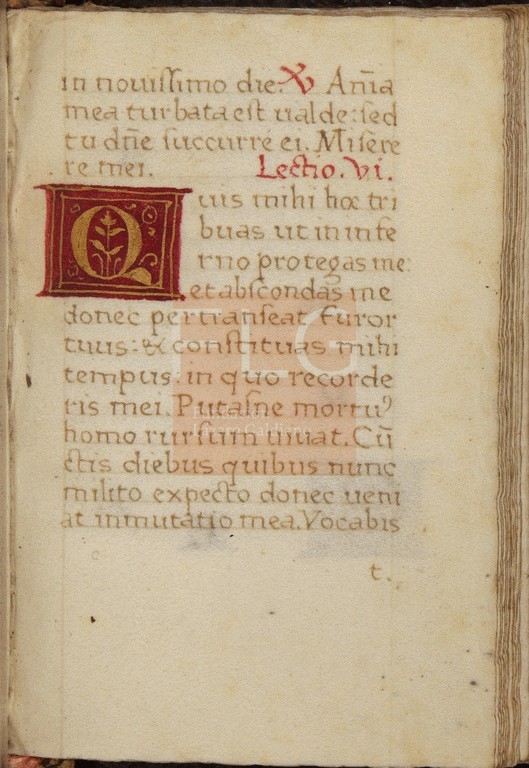 in nouissimo die: ℣ Ani̅a
mea turbata est ualde: sed
tu dn̅e succurre ei. Misere
re mei. Lectio. vi.
Quis mihi hoc tri
buas ut in infe
rno protegas me:
et abscondas me
donec pertranseat furor
tuus: & constituas mihi
tempus: in quo recorde
ris mei. Putasne mortuꝰ
homo rursum uiuat. Cu̅
ctis diebus quibus nunc
milito expecto donec ueni
at inmutatio mea. Vocabis
t.
FLG
Fundación
Lázaro Galdiano